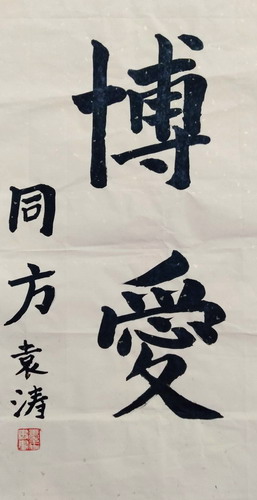 博愛
同方袁涛